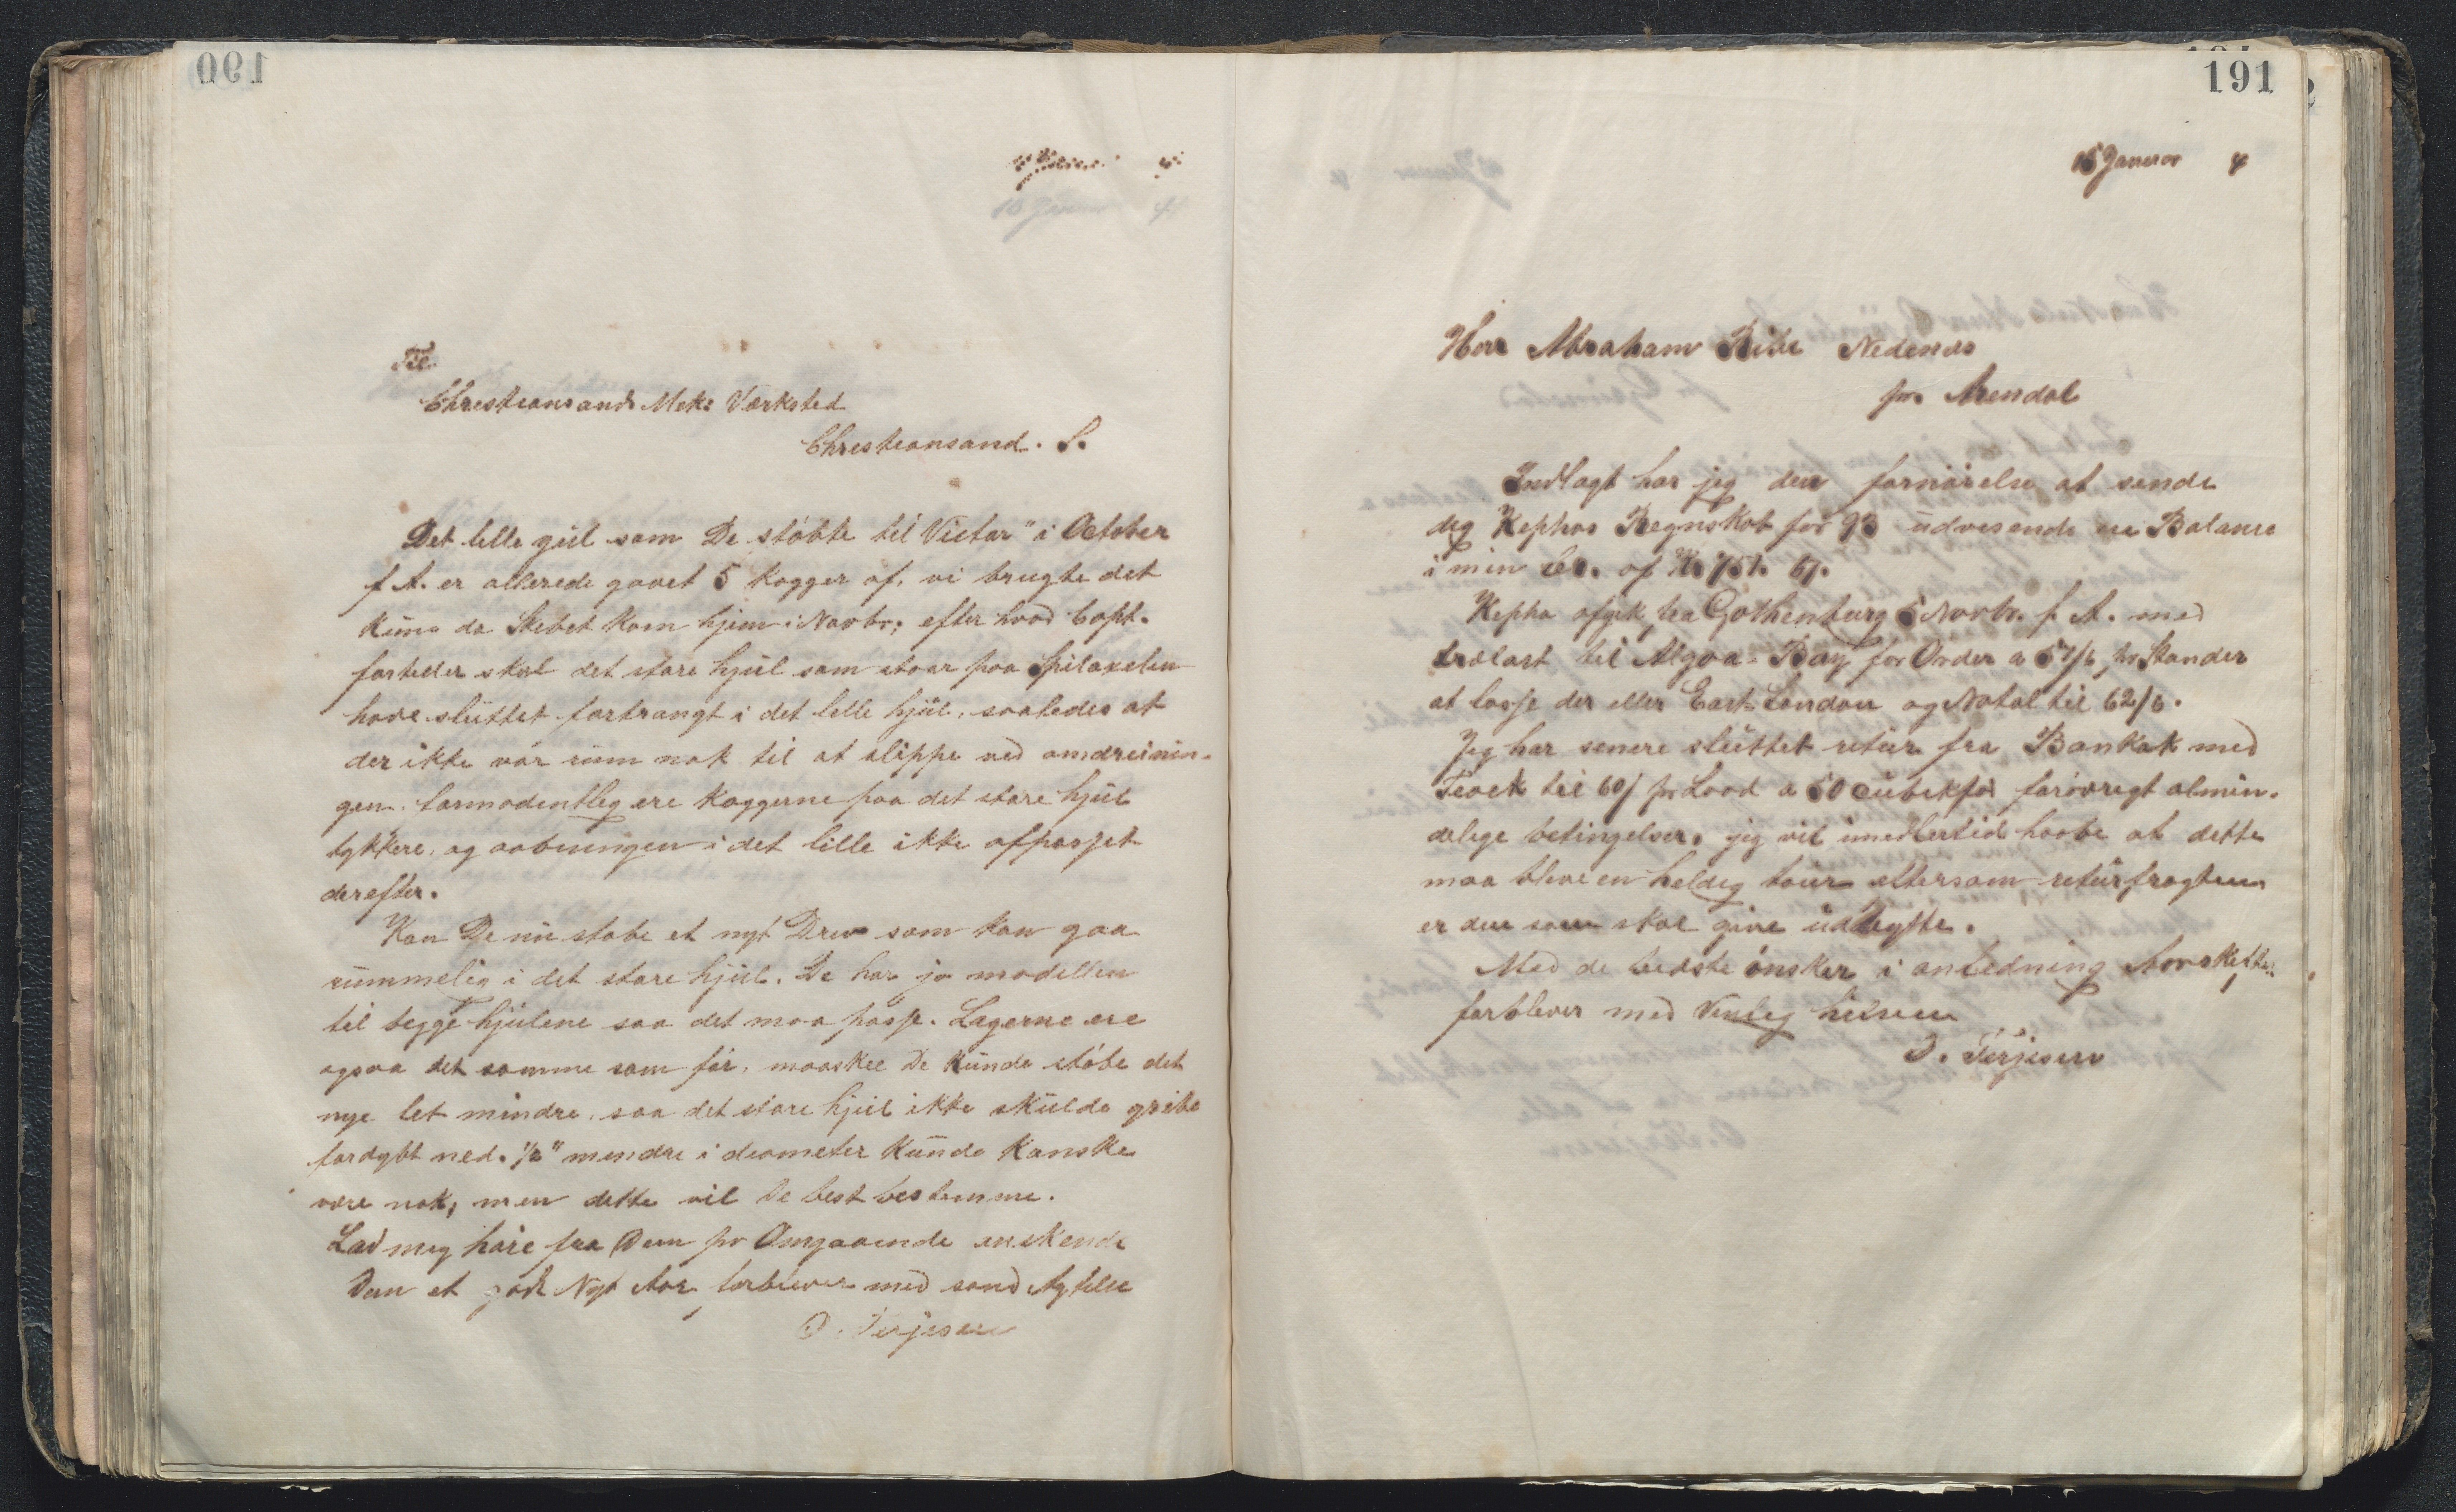 190
10 Januar 4
Til
Christiansands Mek: Værksted
Christiansand. S.
Det lille jul som De støbte til Victor" i October
f A. er allerede gaaet 5 Kogger af, vi brugte det
kuns da Skibet kom hjem i Novbr; efter hvad Capt.
forteller skal det store hjul som staar paa Spilaxelen
have sluttet fortrangt i det lille hjul, saaledes at
der ikke var rum nok til at slippe ved omdreinin-
gen. formodentlig ere Koggerne paa det store hjul
tykkere, og aabningen i det lille ikke afpasset
derefter.
Kan De nu støbe et nyt Drev som kan gaa
rummelig i det store hjul. De har jo modellen
til begge hjulene saa det maa passe. Lagerne ere
ogsaa det samme som før, maaskee De kunde støbe det
nye let mindre, saa det store hjul ikke skulde gribe
fordybt ned. 1/2" mindre i diameter kunde kanske
være nok, men dette vil De best bestemme.
Lad mig høre fra Dem pr Omgaaende ønskende
Dem et godt Nyt Aar, forbliver med sand Agtelse
O. Terjesen
191
15 Januar 4
Herr Abraham Bibe Nedenes
pr. Arendal
Indlagt har jeg den fornøielse at sende
dig Kephas Regnskab for 93 udvisende en Balance
i min af Kr 751. 61.
Kepha afgik fra Gothenburg 5 Novbr. f. A. med
trælast til Algoa-Bay for Order a 57/6 pr Stander
at losse der eller East London og Natal til 62/6.
Jeg har senere sluttet retur fra Bankok med
Teack til 60/ pr Load a 50 cubikfod forøvrigt almin-
delige betingelser, jeg vil imedlertid haabe at dette
maa blive en heldig tour ettersom returfragten
er den som skal give udbytte.
Med de bedste ønsker i anledning Aarskiftet,
forbliver med Venlig hilsen
O. Terjesen